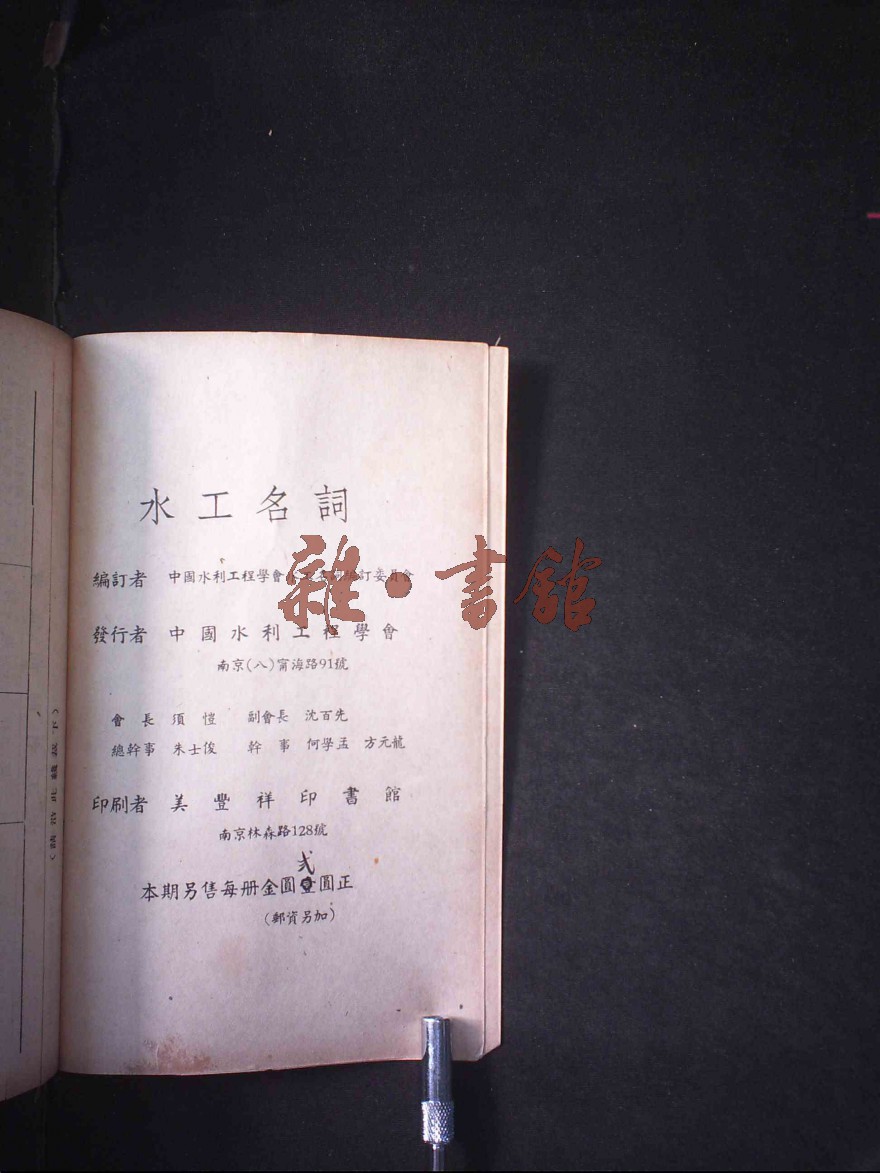 水工名詞
編訂者 中國水利工程學會水工名詞編訂委員會
發行者 中國水利工程學會
南京(八)甯海路91號
會長 須愷 副會長 沈百先
總幹事 朱士俊 幹事 何學孟 方元龍
印刷者 美豐祥印書館
南京林森路128號
貳
本期另售每册金圓壹圓正
(郵資另加)
雜·書館